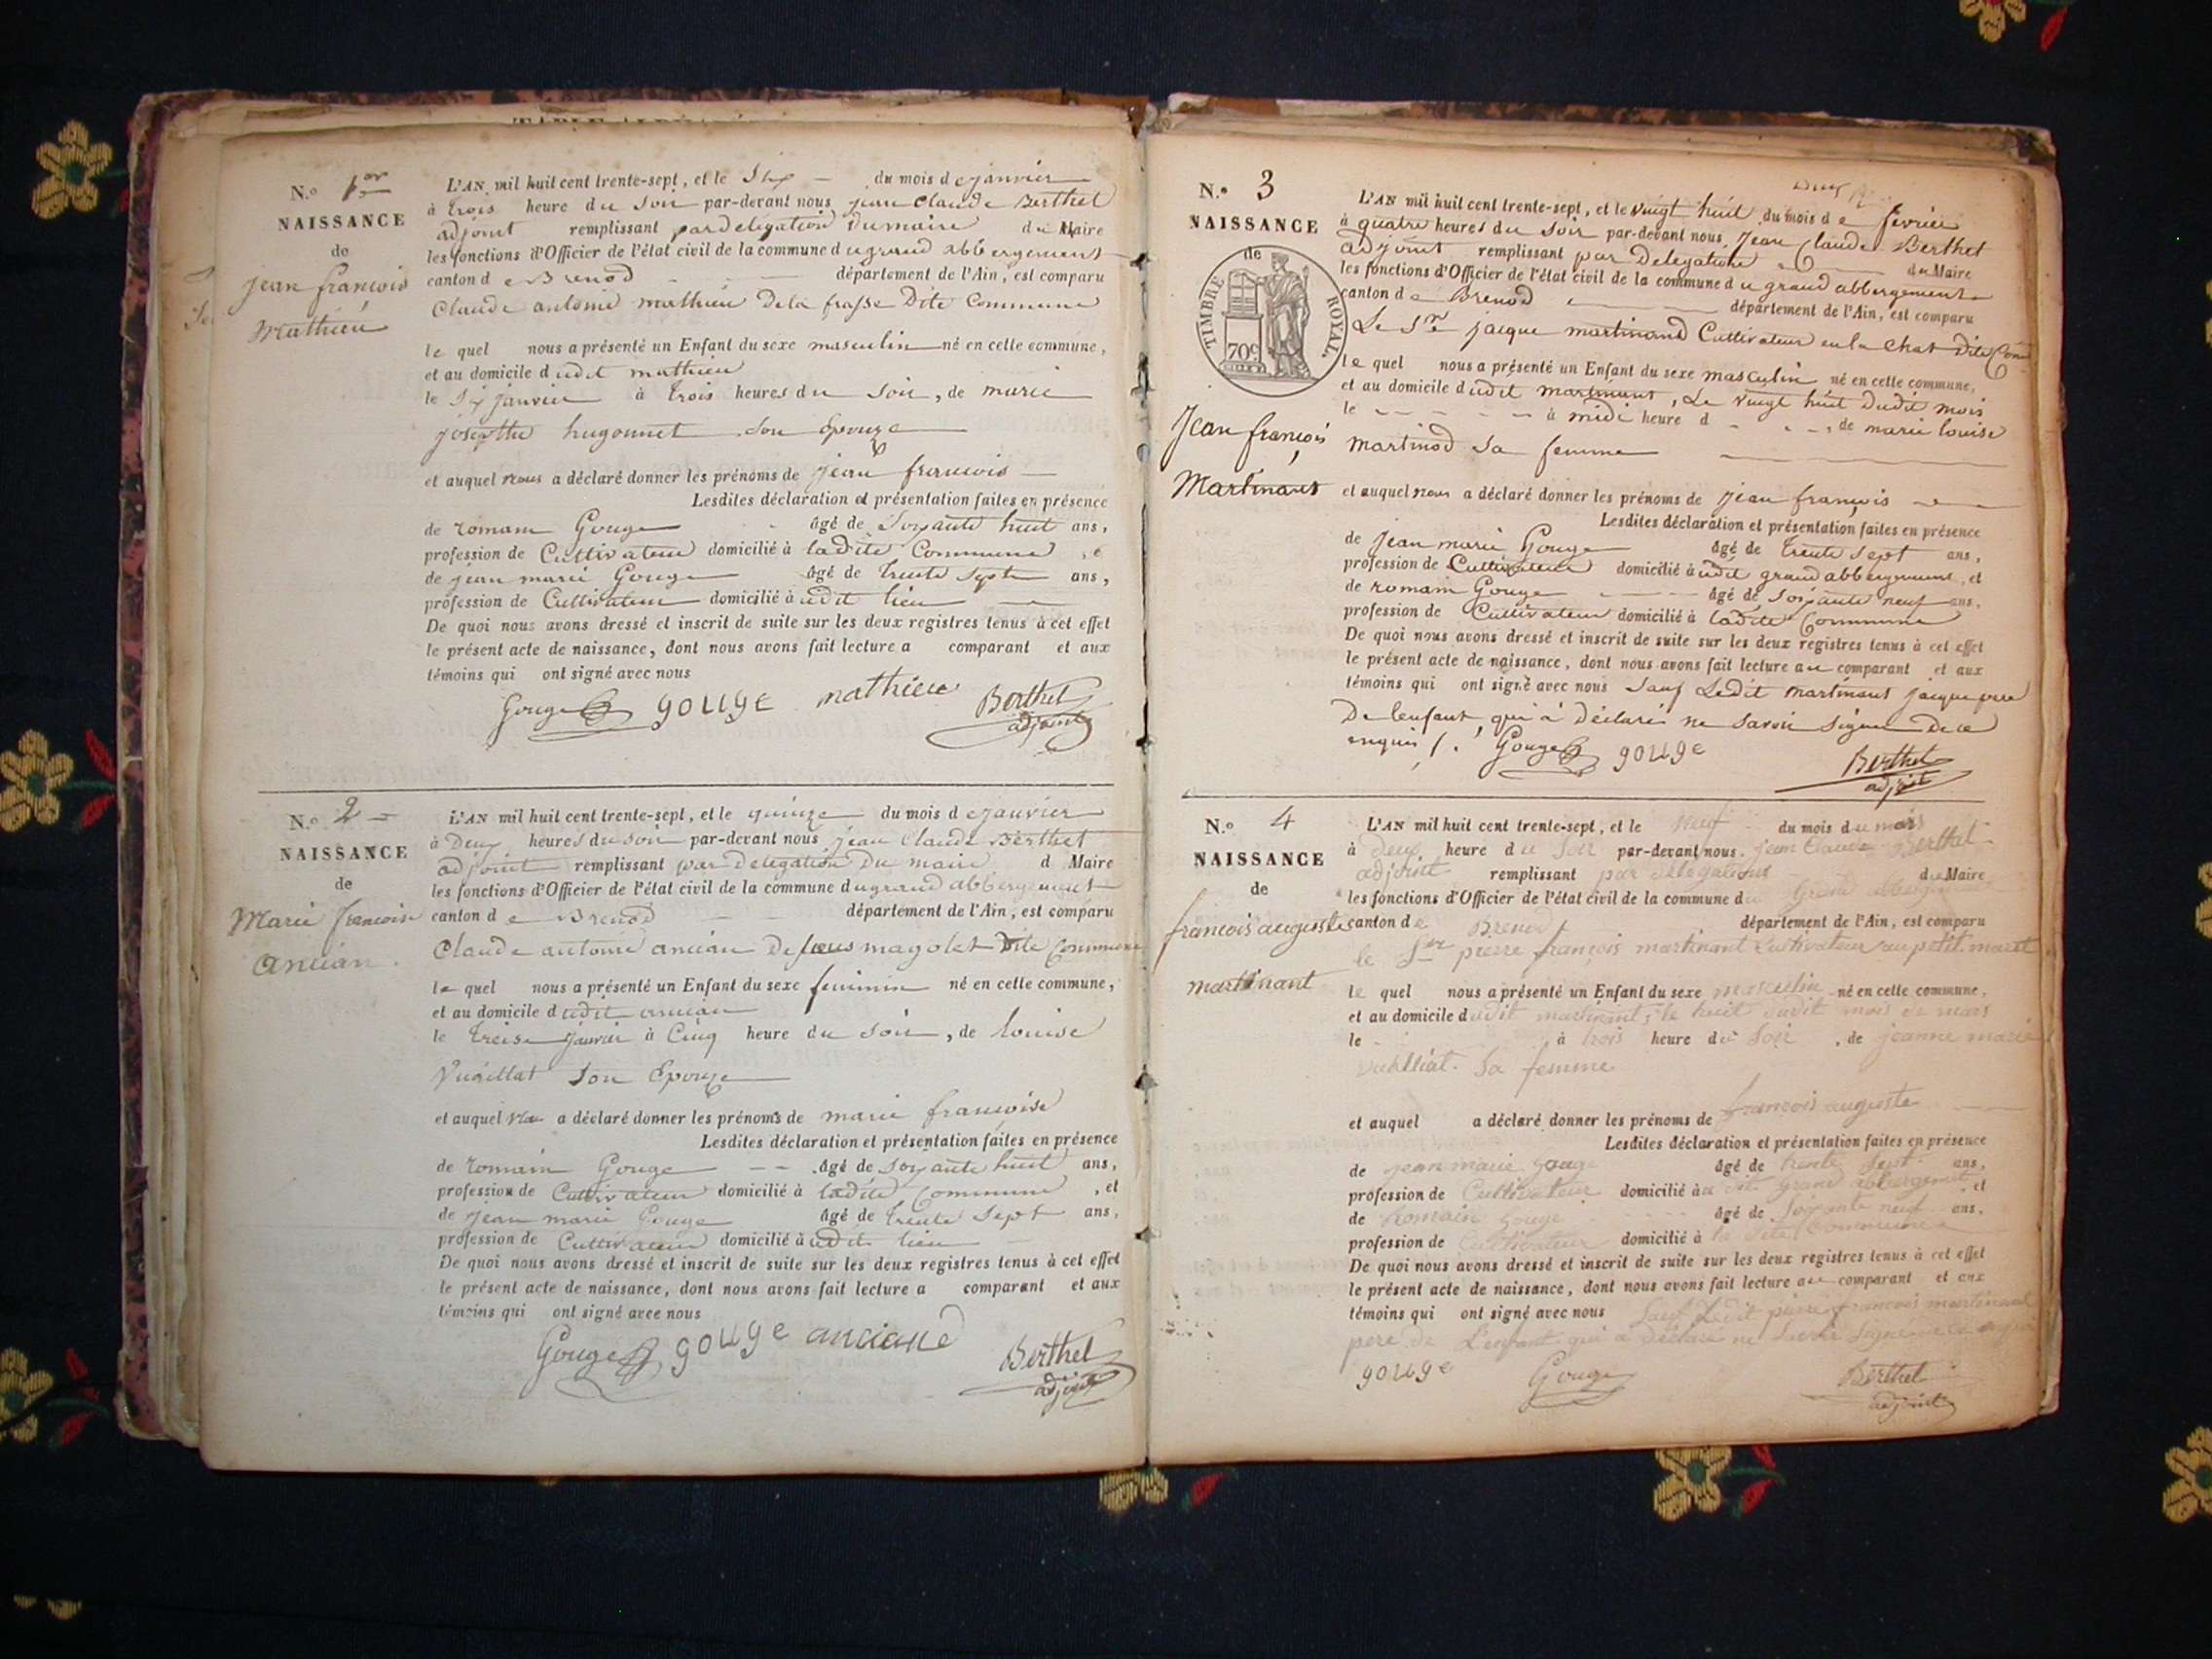 N.o 1er
NAISSANCE
de
jean francois
Mathieu
L'AN mil huit cent trente-sept, et le Six du mois de janvier
à trois heure du Soir par-devant nous jean Claude Berthet
adjoint remplissant par delegation du maire du Maire
les fonctions d'Officier de l'état civil de la commune du grand abbergement
canton de Brenod département de l'Ain, est comparu
Claude antoine mathieu De la frasse Dite Commune
le quel nous a présenté un Enfant du sexe masculin né en cette commune,
et au domicile dudit mathieu
le Six janvier à trois heures du Soir, de marie
josephte hugonnet Son Epouze
et auquel nous a déclaré donner les prénoms de jean francois
Lesdites déclaration et présentation faites en présence
de romain Gouge âgé de Soixante huit ans,
profession de Cultivateur domicilié à ladite Commune, e
de jean marie Gouge âgé de trente Sept ans,
profession de Cultivateur domicilié à udit lieu
De quoi nous avons dressé et inscrit de suite sur les deux registres tenus à cet effet
le présent acte de naissance, dont nous avons fait lecture a comparant et aux
témoins qui ont signé avec nous
Gouge gouge mathieu Berthet
adjoint
N.o 2
NAISSANCE
de
Marie francoise
ancian
L'AN mil huit cent trente-sept, et le quinze du mois de janvier
à Deux heures du soir par-devant nous jean Claude Berthet
adjoint remplissant par delegation Du maire d Maire
les fonctions d'Officier de l'état civil de la commune du grand abbergement
canton de Brenod département de l'Ain, est comparu
Claude antoine ancian De magolet Dite Commune
le quel nous a présenté un Enfant du sexe feminin né en cette commune,
et au domicile dudit ancian
le treise janvier à Cinq heure du Soir, de louise
Vuaillat Son Epouze
et auquel a déclaré donner les prénoms de marie francoise
Lesdites déclaration et présentation faites en présence
de romain Gouge âgé de Soixante huit ans,
profession de Cultivateur domicilié à ladite Commune, et
de jean marie Gouge âgé de trente Sept ans,
profession de Cultivateur domicilié à udit lieu
De quoi nous avons dressé et inscrit de suite sur les deux registres tenus à cet effet
le présent acte de naissance, dont nous avons fait lecture a comparant et aux
témoins qui ont signé avec nous
Gouge gouge anciane
Berthet
adjoint
N.o 3
NAISSANCE
de
TIMBRE ROYAL.
70c
Jean françois
Martinant
L'AN mil huit cent trente-sept, et le vingt huit du mois de fevrier
à quatre heures du Soir par-devant nous Jean Claude Berthet
adjoint remplissant par Delegation du Maire
les fonctions d'Officier de l'état civil de la commune du grand abbergement
canton de Brenod département de l'Ain, est comparu
Le Sre jacque martinand Cultivateur en la Chat Dite Com
le quel nous a présenté un Enfant du sexe masculin né en cette commune,
et au domicile dudit martinant, Le vingt huit Dudit mois
le à midi heure d , de marie louise
Martinod Sa femme
et auquel nous a déclaré donner les prénoms de jean francois
Lesdites déclaration et présentation faites en présence
de jean marie Gouge âgé de trente Sept ans,
profession de Cultivateur domicilié à udit grand abbergement, et
de romain Gouge âgé de Soixante neuf ans,
profession de Cultivateur domicilié à ladite Commune
De quoi nous avons dressé et inscrit de suite sur les deux registres tenus à cet effet
le présent acte de naissance, dont nous avons fait lecture au comparant et aux
témoins qui ont signé avec nous Sauf Ledit martinant jacque pere
De lenfant qui a Déclaré ne Savoir Signer De ce
enquis Gouge gouge
Berthet
adjoint
N.o 4
NAISSANCE
de
francois auguste
martinant
L'AN mil huit cent trente-sept, et le neuf du mois du mars
à deux heure du Soir par-devant nous jean Claude Berthet
adjoint remplissant par delegation du Maire
les fonctions d'Officier de l'état civil de la commune du Grand abbergement
canton de Brenod département de l'Ain, est comparu
le Sre pierre françois martinant Cultivateur au petit maret
le quel nous a présenté un Enfant du sexe masculin né en cette commune,
et au domicile dudit martinant, le huit dudit mois de mars
le à trois heure du Soir, de jeanne marie
Sa femme
et auquel a déclaré donner les prénoms de francois auguste
Lesdites déclaration et présentation faites en présence
de jean marie gouge âgé de trente Sept ans,
profession de Cultivateur domicilié à u dit grand abbergement, et
de Romain gouge âgé de Soixante neuf ans,
profession de Cultivateur domicilié à la dite Commune
De quoi nous avons dressé et inscrit de suite sur les deux registres tenus à cet effet
le présent acte de naissance, dont nous avons fait lecture au comparant et aux
témoins qui ont signé avec nous Sauf Ledit pierre francois martinant
pere de L'enfant qui a Déclaré ne Savoir Signer
gouge Gouge Berthet
adjoint